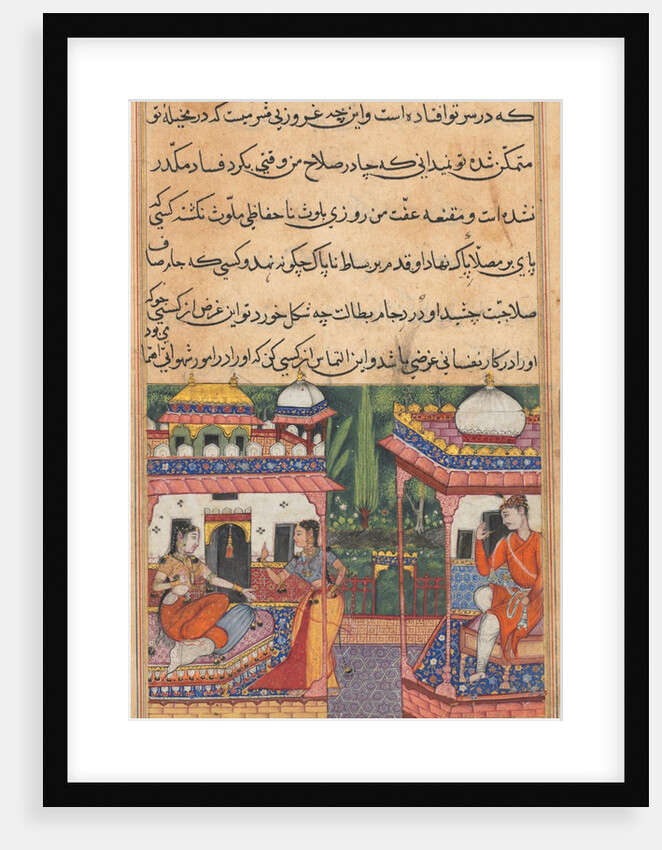 که در سر تو افتاده است و این چه غرور بی شرمیست که در مخیلهٔ تو
متمکن شده تو نمیدانی که چادر صلاح من وقتی بکرد فساد مکدر
نشده است و مقنعه عفت من روزی بلوث ناحفاظی ملوث نکشته کسی که
پای بر مصلا پاک نهاد او قدم بر بساط ناپاک چکونه نهد و کسی که جام صاف
صلاحیت چشید او دردِ جام بطالت چه شکل خورد تو این غرض از کسی جو که
اورا در کار نفسانی غرضی باشد و این التماس از کسی کن که اورا در امور شهوانی اهتمامی بود